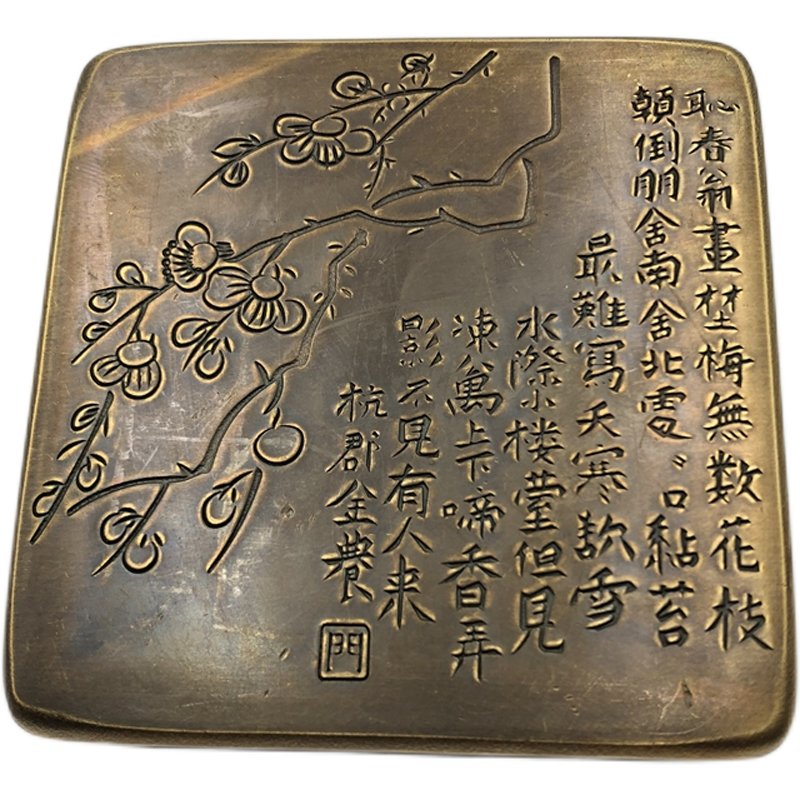 恥春翁畫埜梅無数花枝
顛倒朋舍南舍北雯〻口黏苔
最難寫天寒欲雪
水際小楼臺但見
凍萬上下啼香弄
影不見有人来
杭郡金農
門